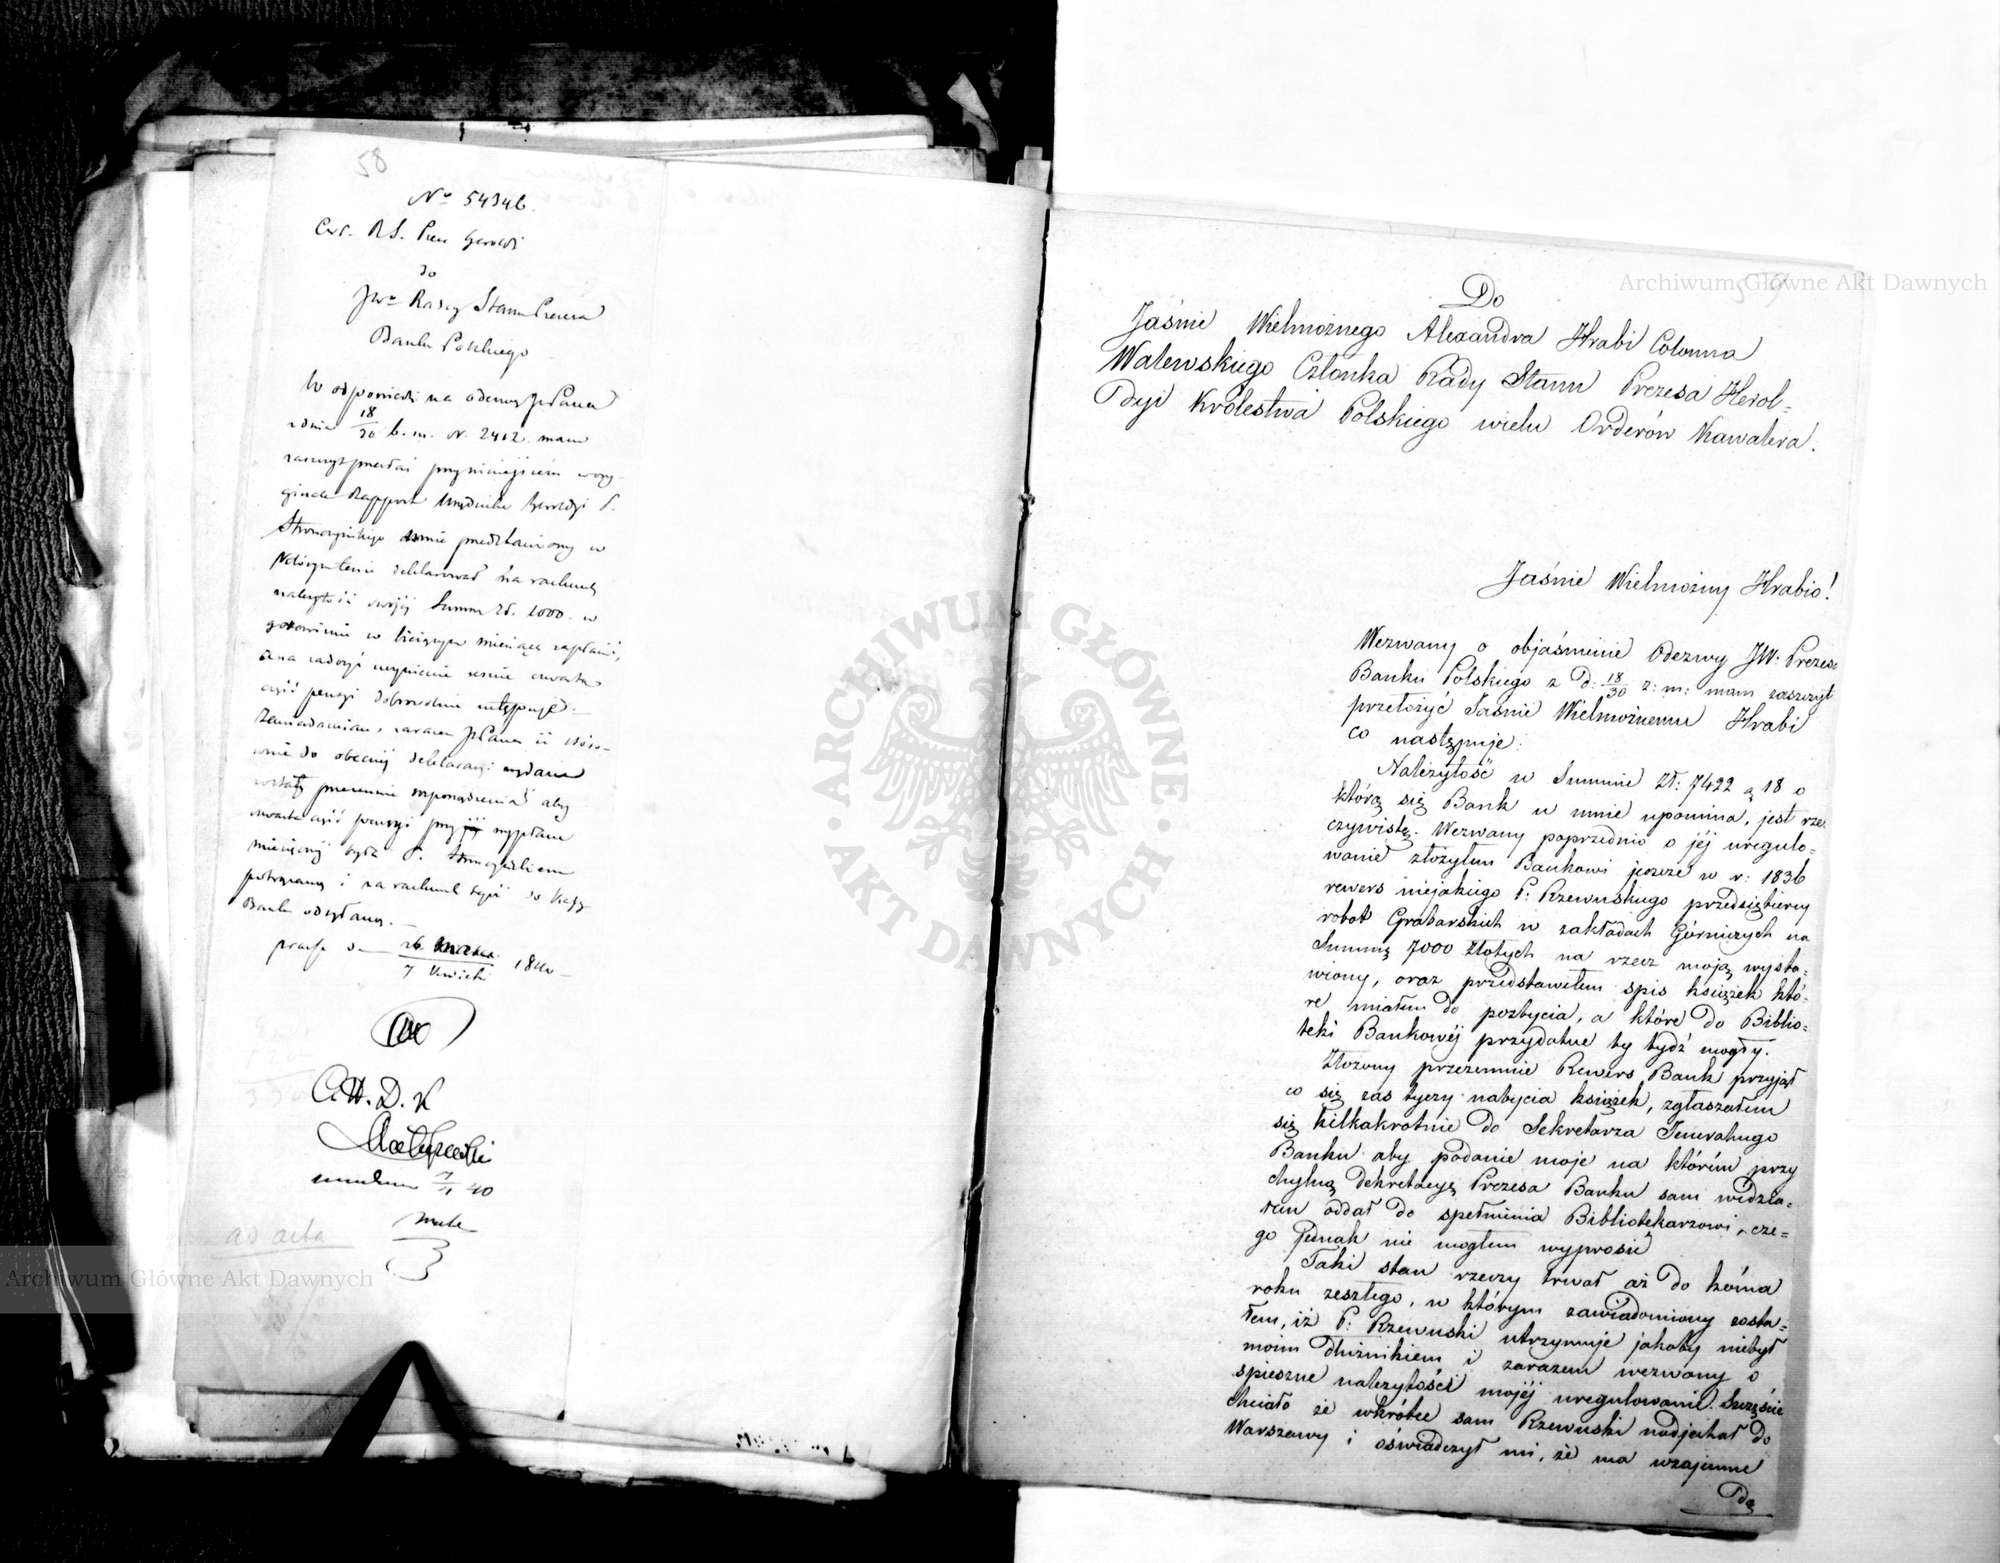 58
No 54346.
do
JWo Radcy Stanu Prezesa
Banku Polskiego
W odpowiedzi na odezwę JWPana
z dnia 18/30 b. m. N. 2412. mam
zaszczyt przesłać przy niniejszém w ory-
ginale Rapport Urzędnika Heroldyi P.
Stronczyńskiego mnie przedstawiony w
którym tenże deklarował na rachunek
należytości swojéj Summę Zł. 1000. w
gotowiźnie w bieżącym miesiącu zapłacić,
a na
część pensyi dobrowolnie ustępuje.
Zawiadamiam, zarazem JWPana iż stóso-
wnie do obecnéj deklaracyi wydane
zostały przezemnie rozporządzenia aby
czwarta część pensyi przy wypłacie
miesięcznéj była P. Stronczyńskiemu
potrącaną i na rachunek tejże do Kassy
Banku odsyłaną.
26 Marca
7 Kwietnia 1840
C. H. D. K
7/4 40
ad acta
Do
Jaśnie Wielmożnego Alexandra Hrabi Colonna
Walewskiego Członka Rady Stanu Prezesa Herol=
dyi Królestwa Polskiego wielu Orderów Kawalera.
Jaśnie Wielmożny Hrabio!
Wezwany o objaśnienie Odezwy JW: Prezesa
Banku Polskiego z d: 18/30 z: m: mam zaszczyt
przełożyć Jaśnie Wielmożnemu Hrabi
co następuje:
Należytość w Summie Zł: 7422 g 18 o
którą się Bank u mnie upomina, jest rze=
czywistą. Wezwany poprzednio o jéj uregulo=
wanie złożyłem Bankowi jeszcze w r: 1836
rewers niejakiego P: Rzewuskiego przedsiębiercy
robót Grabarskich w zakładach Górniczych na
Summę 7000 Złotych na rzecz moją wysta=
wiony, oraz przedstawiłem spis książek któ=
re miałem do pozbycia, a które do Biblio=
teki Bankowéj przydatne by bydź mogły.
Złożony przezemnie Rewers Bank przyjął
co się zas tyczy nabycia książek, zgłaszałem
się kilkakrotnie do Sekretarza Jeneralnego
Banku aby podanie moje na którém przy
chylną dekretacyę Prezesa Banku sam widzia=
łem oddał do spełnienia Bibliotekarzowi, cze=
go jednak nie mogłem wyprosić
Taki stan rzeczy trwał aż do końca
roku zeszłego, w którym zawiadomiony zosta=
łem, iż P: Rzewuski utrzymuje jakoby niebył
moim dłużnikiem i zarazem wezwany o
spieszne należytości mojéj uregulowanie. Szczęście
chciało że wkrótce sam Rzewuski nadjechał do
Warszawy i oświadczył mi, że ma wzajemne
dą
Archiwum Główne Akt Dawnych
Archiwum Główne Akt Dawnych
ARCHIWUM GŁÓWNE
AKT DAWNYCH